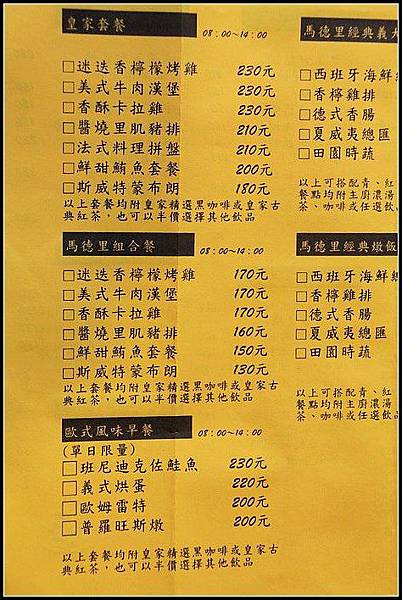 皇家套餐 08:00~14:00
□迷迭香檸檬烤雞 230元
□美式牛肉漢堡 230元
□香酥卡拉雞 230元
□醬燒里肌豬排 210元
□法式料理拼盤 210元
□鮮甜鮪魚套餐 200元
□斯威特蒙布朗 180元
以上套餐均附皇家精選黑咖啡或皇家古
典紅茶，也可以半價選擇其他飲品
馬德里組合餐 08:00~14:00
□迷迭香檸檬烤雞 170元
□美式牛肉漢堡 170元
□香酥卡拉雞 170元
□醬燒里肌豬排 160元
□鮮甜鮪魚套餐 150元
□斯威特蒙布朗 130元
以上套餐均附皇家精選黑咖啡或皇家古
典紅茶，也可以半價選擇其他飲品
歐式風味早餐 08:00~14:00
(單日限量)
□班尼迪克佐鮭魚 230元
□義式烘蛋 220元
□歐姆雷特 200元
□普羅旺斯燉 200元
以上套餐均附皇家精選黑咖啡或皇家古
典紅茶，也可以半價選擇其他飲品
馬德里經典義大
□西班牙海鮮
□香檸雞排
□德式香腸
□夏威夷總匯
□田園時蔬
以上可搭配青、紅
餐點均附主廚濃湯
茶、咖啡或任選飲
馬德里經典燉飯
□西班牙海鮮
□香檸雞排
□德式香腸
□夏威夷總匯
□田園時蔬
以上可搭配青、紅
餐點均附主廚濃湯
茶、咖啡或任選飲